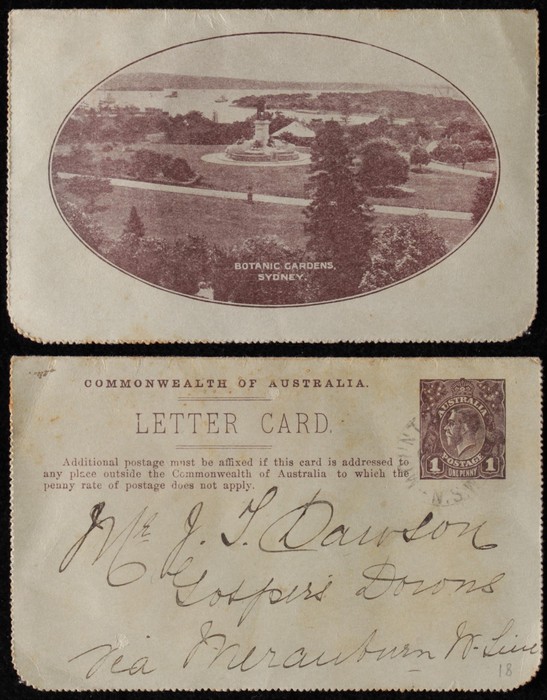 BOTANIC GARDENS,
SYDNEY.
COMMONWEALTH OF AUSTRALIA.
LETTER CARD.
Additional postage must be affixed if this card is addressed to
any place outside the Commonwealth of Australia to which the
penny rate of postage does not apply.
AUSTRALIA
1 POSTAGE 1
ONE PENNY
N.S.
Mr J. T. Dawson
Gospers Downs
via Merauburn W. Line
18